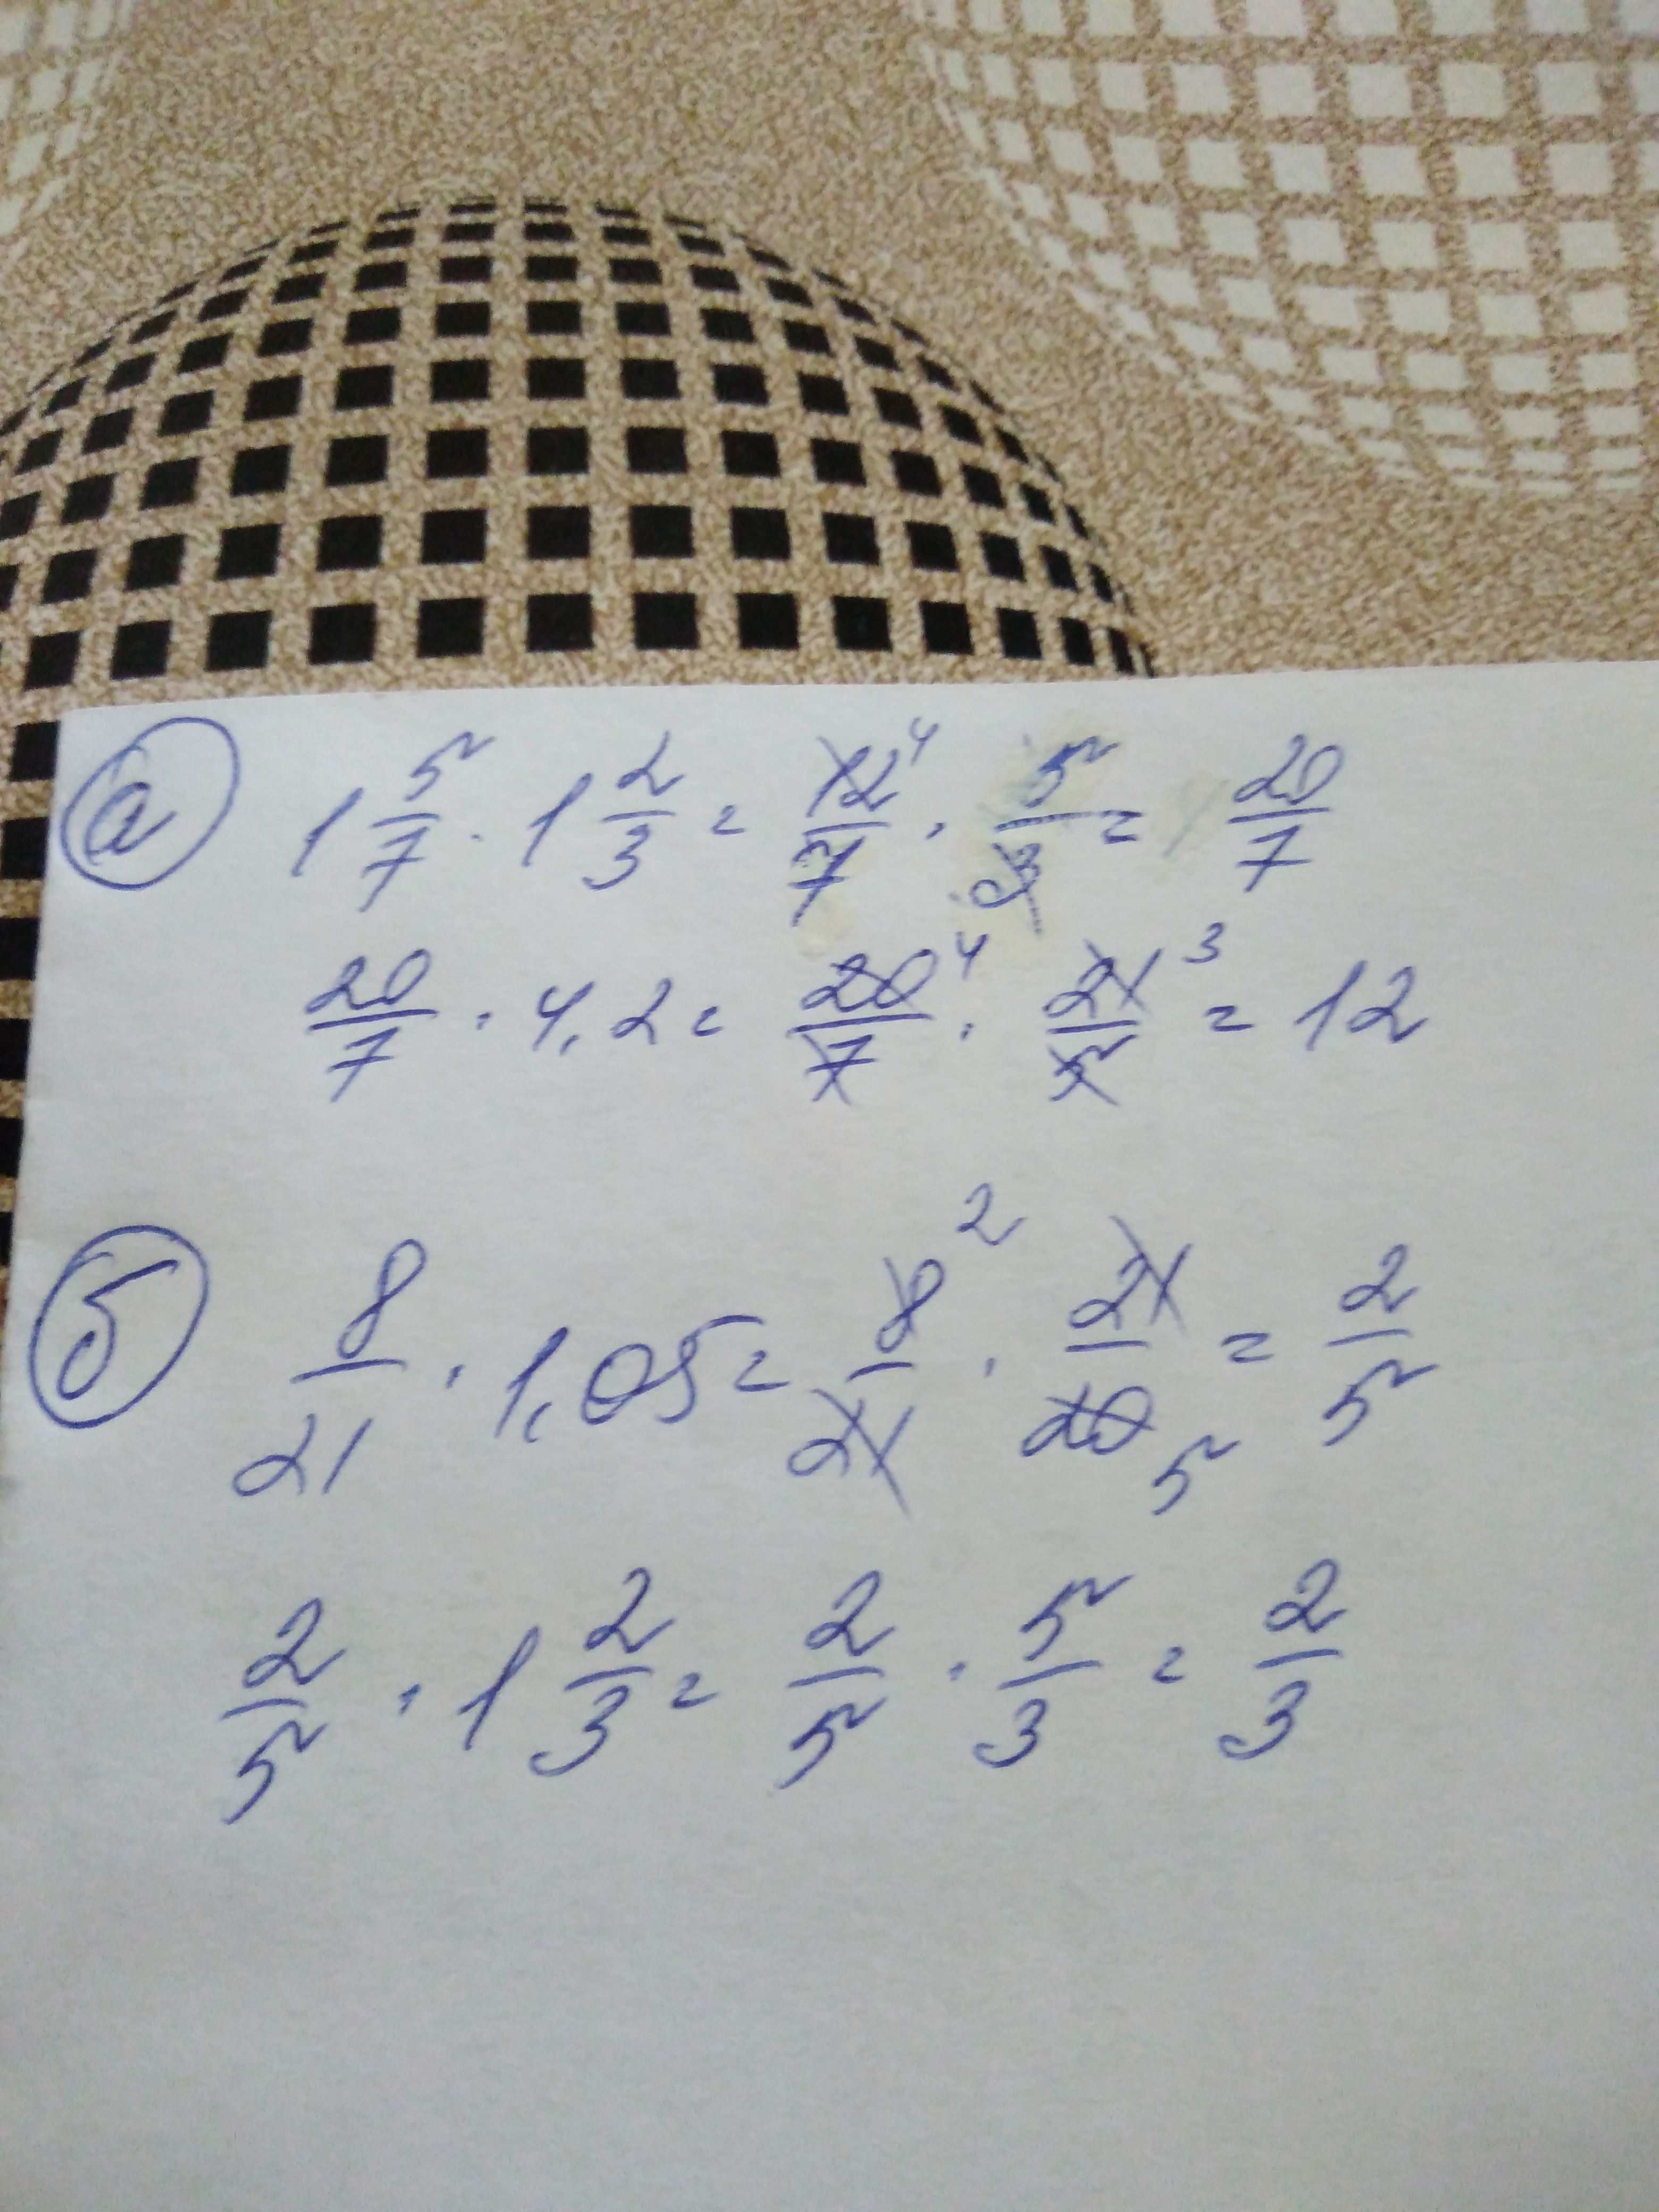 а 1 5/7 · 1 2/3 = 12/7 4 · 5/3 = 20/7
20/7 · 4,2 = 20/7 4 · 21/5 3 = 12
б 8/21 · 1,05 = 8/21 2 · 21/20 5 = 2/5
2/5 · 1 2/3 = 2/5 · 5/3 = 2/3